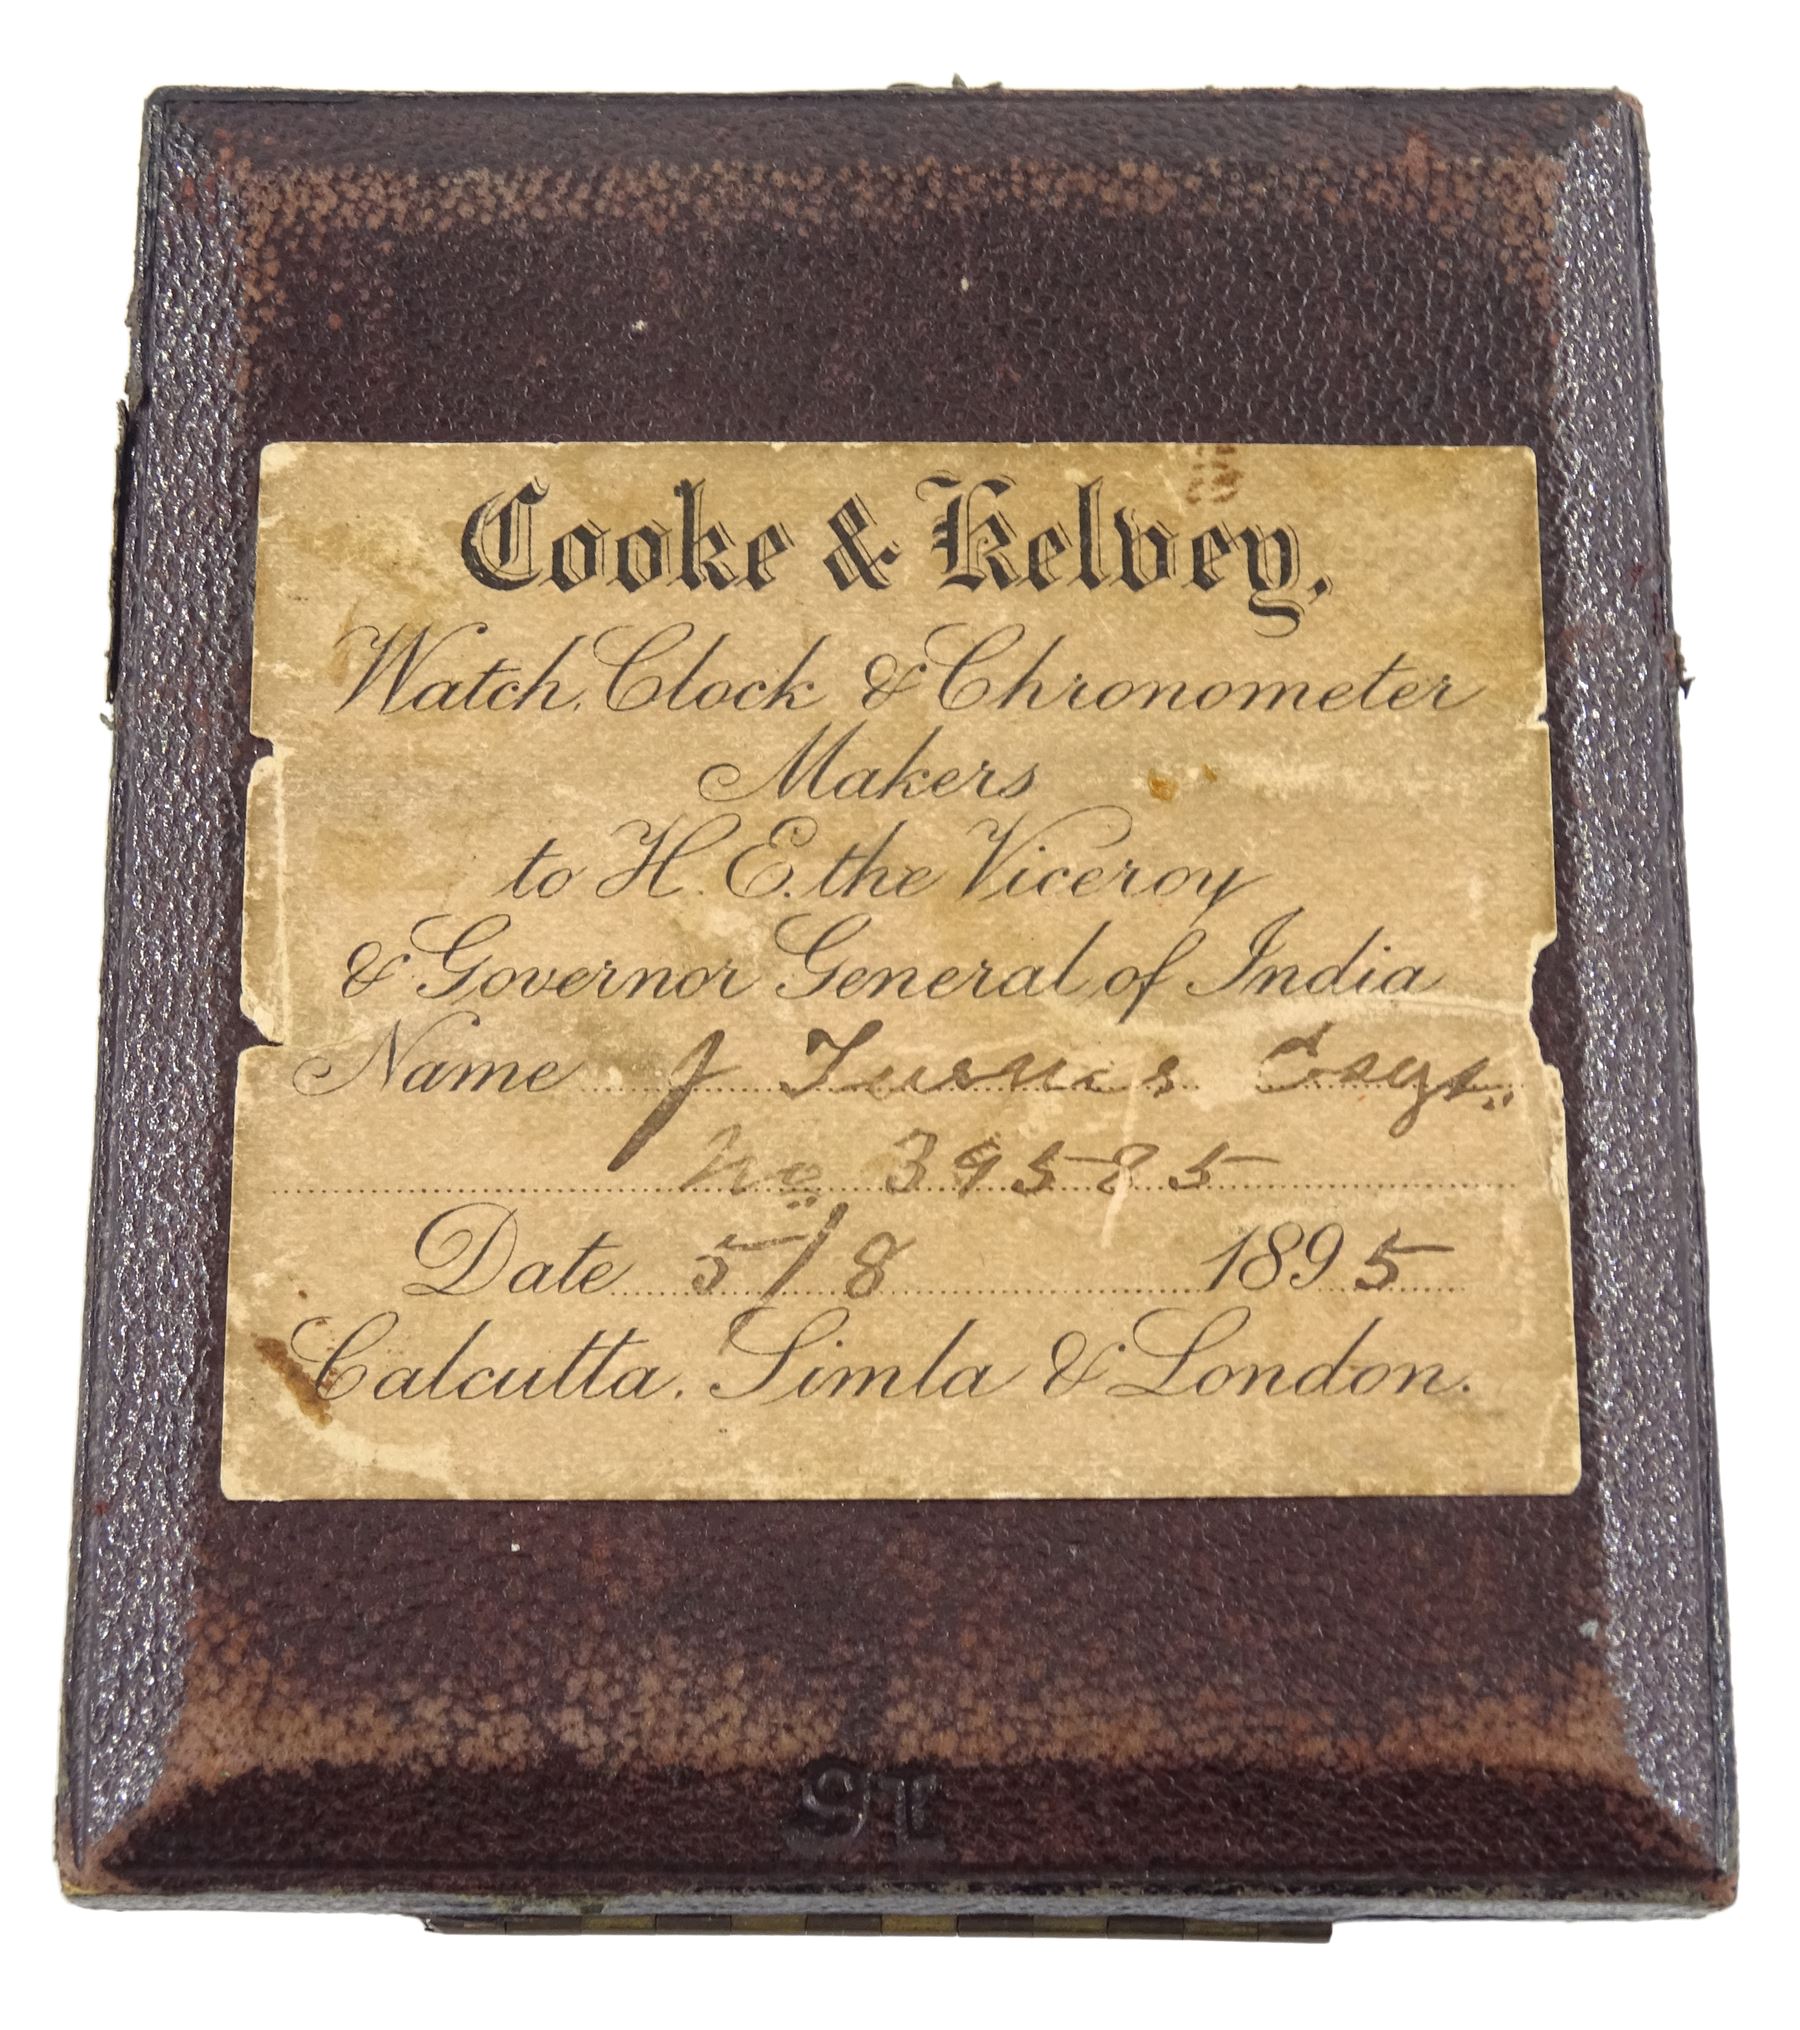 Cooke & Kelvey,
Watch, Clock & Chronometer
Makers
to H. E. the Viceroy
& Governor General of India
Name J Esqr.
No 39585
Date 5/8 1895
Calcutta, Simla & London.